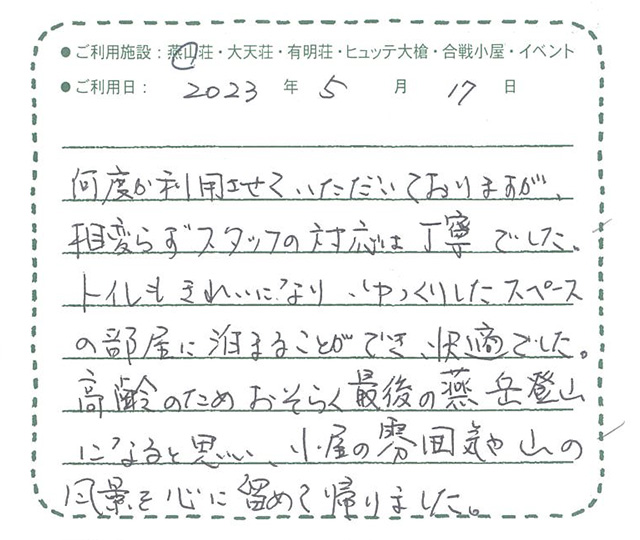 ● ご利用施設：燕山荘・大天荘・有明荘・ヒュッテ大槍・合戦小屋・イベント
● ご利用日： 2023 年 5 月 17 日
何度か利用させていただいておりますが、
相変らずスタッフの対応は丁寧でした。
トイレもきれいになり、ゆっくりしたスペース
の部屋に泊まることができ、快適でした。
高齢のためおそらく最後の燕岳登山
になると思い、小屋の雰囲気や山の
風景を心に留めて帰りました。